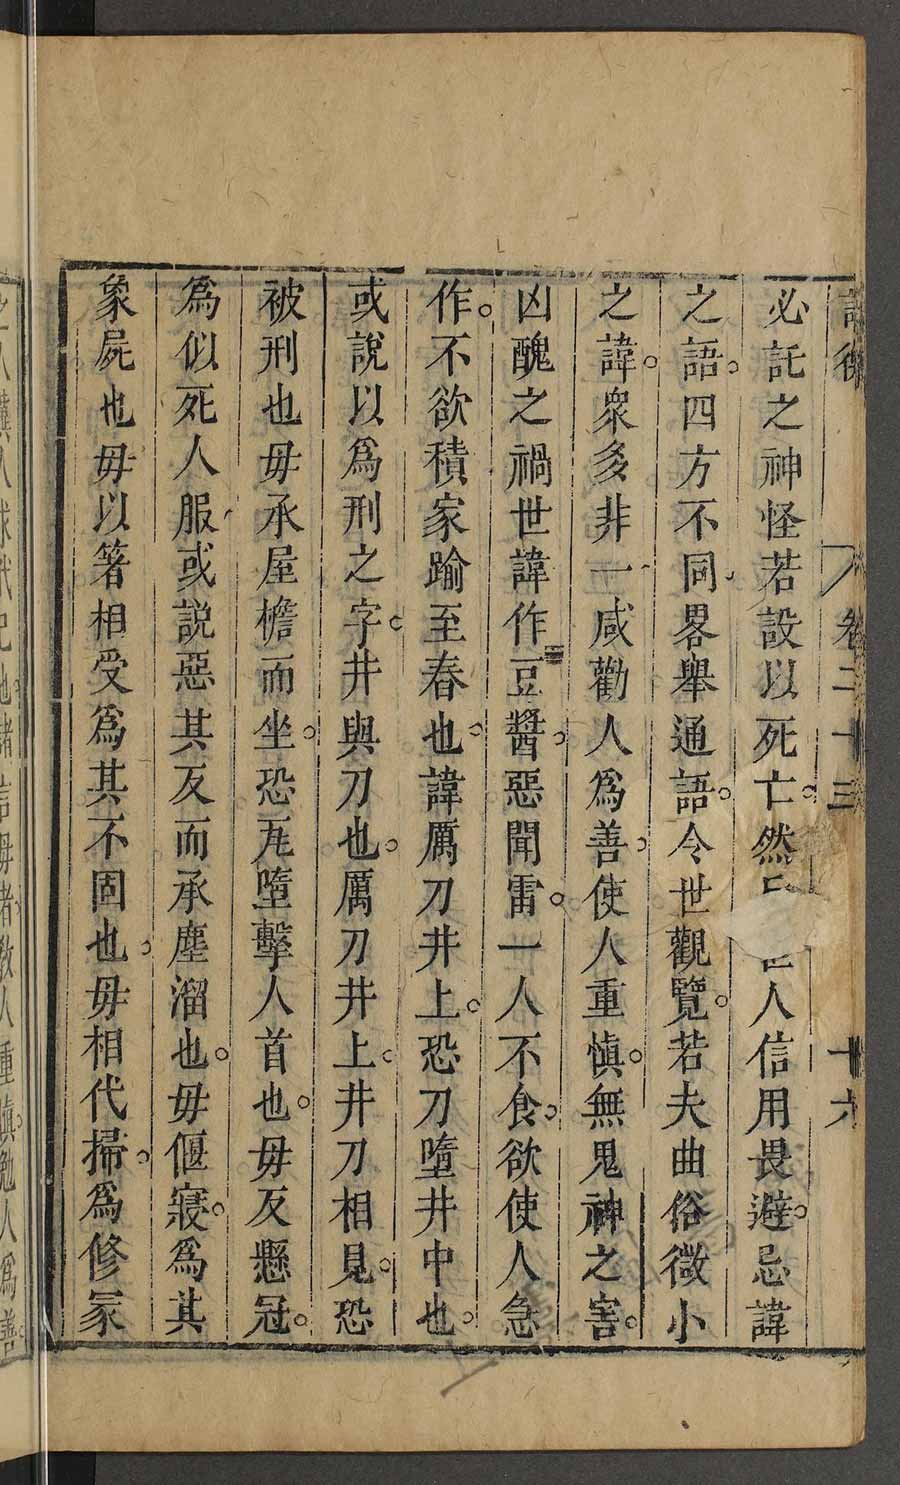 卷二十三 十六
必託之神怪若設以死亡。然人信用畏避。忌諱
之語。四方不同畧舉通語。令世觀覽。若夫曲俗微小
之諱。衆多非一咸勸人爲善。使人重慎。無鬼神之害。
凶醜之禍世諱作豆醬。惡聞雷。一人不食。欲使人急
作。不欲積家踰至春也。諱厲刀井上。恐刀墮井中也。
或說以爲刑之字。井與刀也。厲刀井上。井刀相見。恐
被刑也毋承屋檐而坐。恐瓦墮擊人首也。毋反懸冠。
爲似死人服或説惡其反而承塵溜也。毋偃寢。爲其
象屍也毋以箸相受爲其不固也。毋相代掃。爲修冢